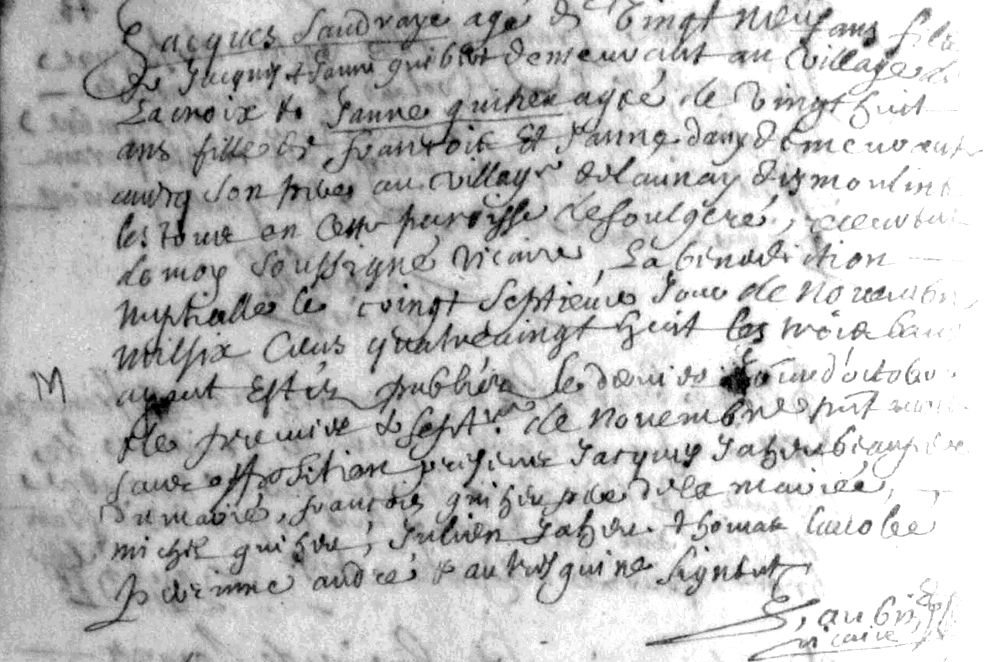 Jacques Saudraye agé de vingt neuf ans fils
de Jacques & Janne guibert demeurant au village de
Lacroix & Janne guiheu agée de vingt huit
ans fille de francois Et Janne dany demeurante
avecq son pere au village de launay des moulins
les tous en cette paroisse de fougeré,
de moy Soussigné vicaire, La benediction
nuptialle le vingt Septieme Jour de novembre
mil six Cens quatre vingt huit les trois bans
ayant Estés publiés le dernier Jour d'octobre
& le premier & Sept. de novembre
sans opposition presens Jacques Jaheu beaupere
du marié, francois guiheu pere de la mariée,
michel guiheu, Julien Jaheu, thomas
perinne andré & autres qui ne signent
M
aubin
vicaire